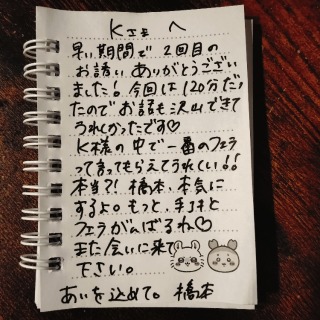 K様へ
早い期間で2回目の
お誘いありがとうござい
ました！今回は120分だっ
たのでお話も沢山できて
うれしかったです♡
K様の中で一番のフェラ
って言ってもらえてうれしい!!
本当?!橋本、本気に
するよ。もっと、手コキと
フェラがんばるね♡
また会いに来て
下さい。
あいを込めて。橋本